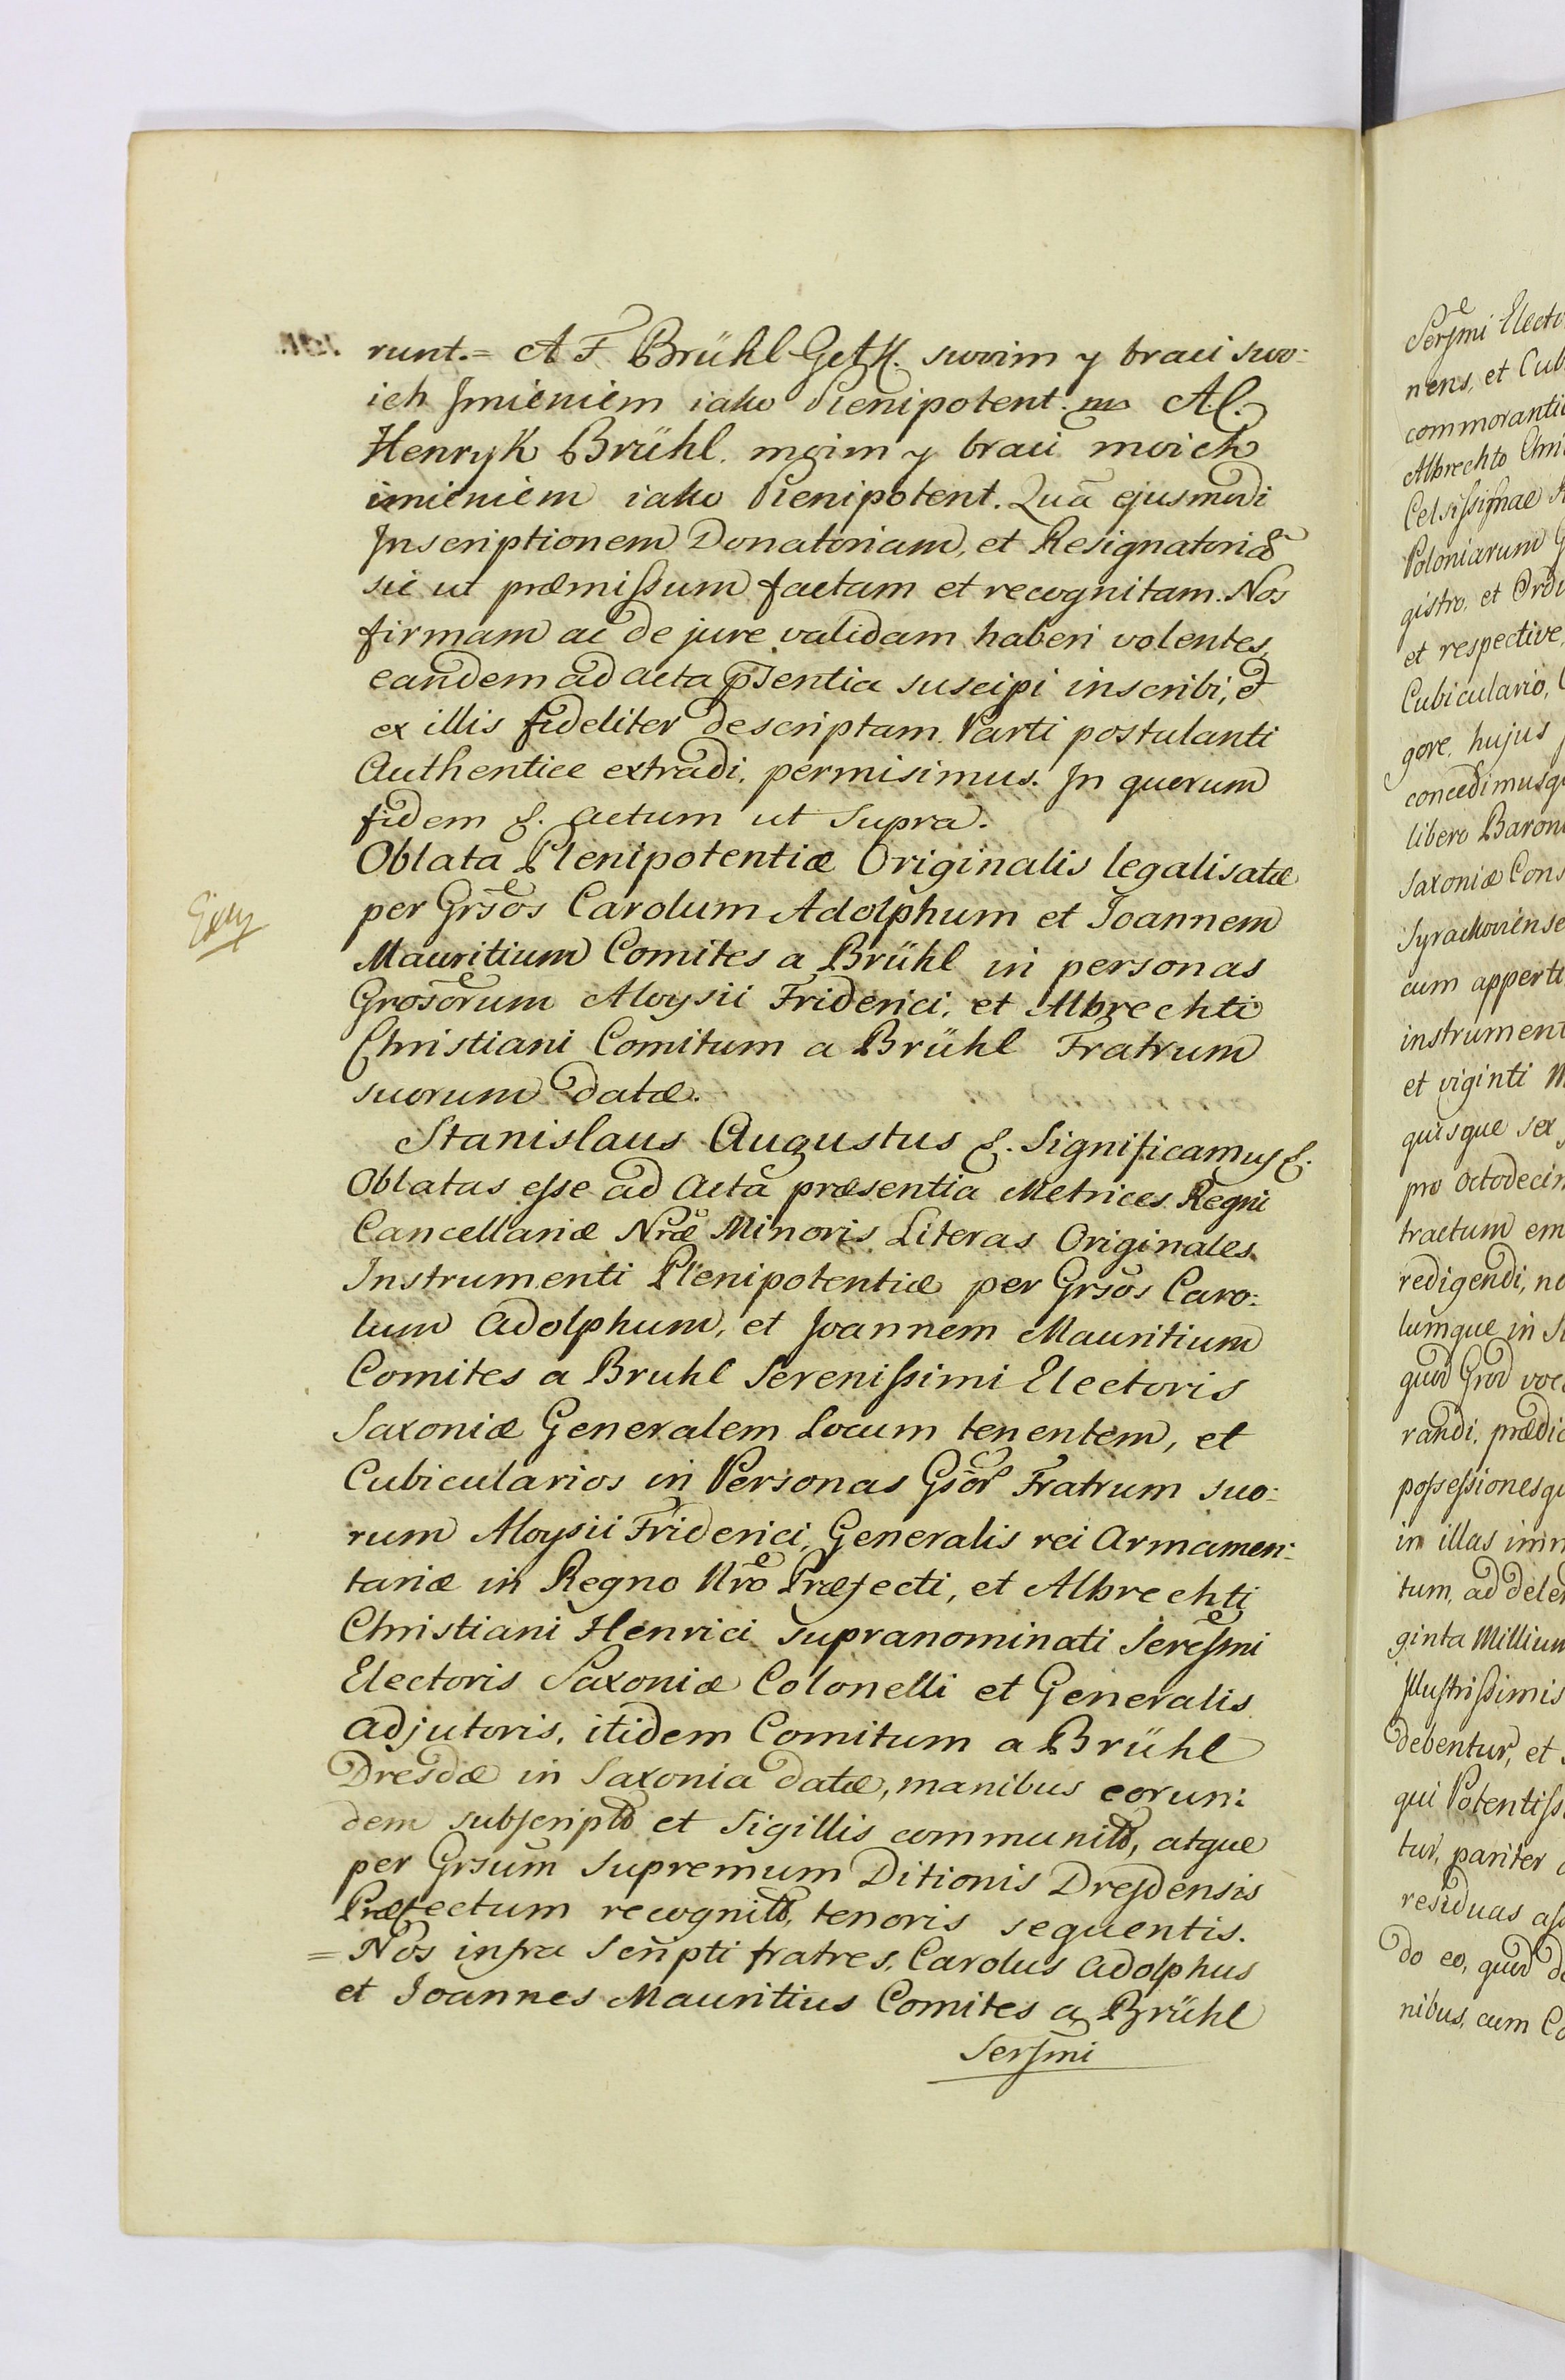 runt.= A F Brühl G swoim y braci swo:
ich Jmieniem iako Plenipotent. A. C.
Henryk Brühl. moim y braci moich
imieniem iako Plenipotent. Quã ejusmodi
Inscriptionem Donatoriam, et Resignatoriã
sic ut præmissum factam et recognitam. Nos
firmam ac de jure validam haberi volentes,
eandem ad acta p̃sentia suscipi inscribi, et
ex illis fideliter descriptam Parti postulanti
Authentice extradi, permisimus. In quorum
fidem &. Actum ut Supra.
Oblata Plenipotentiæ Originalis legalisatæ
per Grsõs Carolum Adolphum et Joannem
Mauritium Comites a Brühl in personas
Grosõrum Aloysii Friderici, et Albrechti
Christiani Comitum a Brühl Fratrum
suorum datæ.
Stanislaus Augustus &. Significamus &.
Oblatas esse ad Acta præsentia Metrices Regni
Cancellariæ Nræ Minoris Literas Originales
Instrumenti Plenipotentiæ per Grsõs Caro:
lum Adolphum, et Joannem Mauritium
Comites a Bruhl Serenissimi Electoris
Saxoniæ Generalem Locum tenentem, et
Cubicularios in Personas Gsõr Fratrum suo:
rum Aloysii Friderici, Generalis rei Armamen:
tariæ in Regno Nrõ Præfecti, et Albrechti
Christiani Henrici supranominati Seresmi
Electoris Saxoniæ Colonelli et Generalis
adjutoris, itidem Comitum a Brühl
Dresdæ in Saxonia datæ, manibus eorun:
dem subscript et Sigillis communit, atque
per Grsum Supremum Ditionis Dresdensis
Præfectum recognit, tenoris sequentis.
= Nos infra Scripti fratres, Carolus Adolphus
et Joannes Mauritius Comites a Brühl
Sersmi
Sersmi Electo
nens, et Cub
commorantiu
Albrechto Chri
Celsissimae
Poloniarum
gistro, et Ordi
et respective
Cubiculario,
gore, hujus
concedimusq
libero Baron
Saxoniæ Cons
Syrackoviense
cum apperti
instrument
et viginti M
quisque sex
pro octodecim
tractum em
redigendi, no
lumque in
quod Grod voc
randi, prædic
possessionesqu
in illas imm
tum, ad delen
ginta Millium
Illustrissimis
debentur, et
qui Potentiss
tur, pariter
residuas ass
do eo, quod d
nibus, cum Co